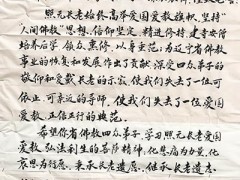 照元长老始终高举爱国爱教旗帜,坚持
"人间佛教"思想,信仰坚定,精进修持,建寺安僧
培养后学,领众熏修,以身示范;为辽宁省佛教
事业的恢复和发展作出了贡献,深受四众弟子的
敬仰和爱戴。长老的示寂,使我们失去了一位可
依止、可亲近的导师,使我们失去了一位爱国
爱教、正信正行的典范。
希望你省佛教四众弟子,学习照元长老爱国
爱教、弘法利生的菩萨精神,化悲痛为力量,化
哀思为行愿,秉承长老遗愿,继承长老遗志